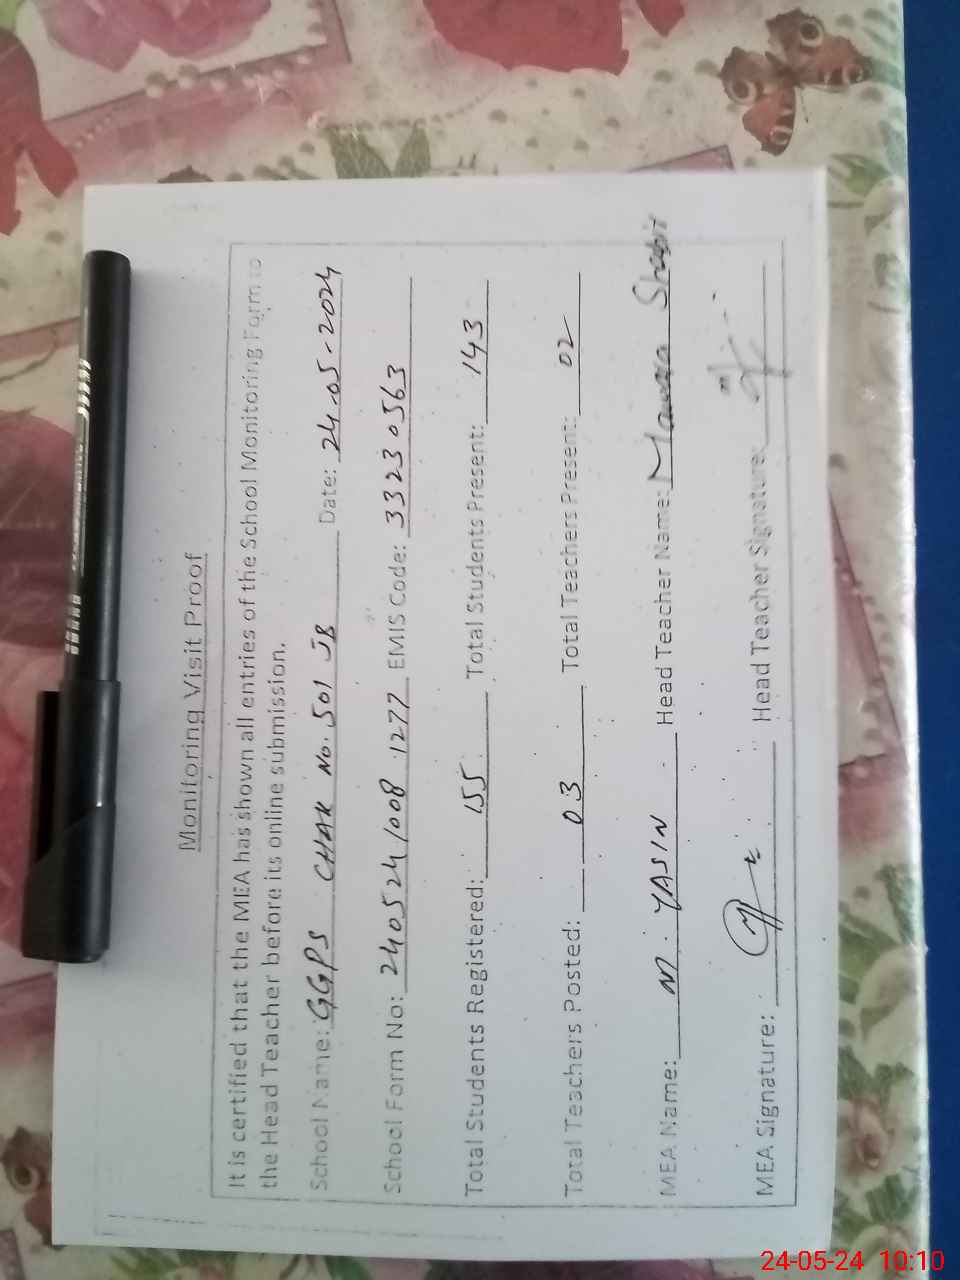 Monitoring Visit Proof
It is certified that the MEA has shown all entries of the School Monitoring Form to
the Head Teacher before its online submission.
School Name: GGPS CHAK No. 501 JB Date: 24-05-2024
School Form No: 240524 1008 1277 EMIS Code: 33230563
Total Students Registered: 155 Total Students Present: 143
Total Teachers Posted: 03 Total Teachers Present: 02
MEA Name: M. YASIN Head Teacher Name: Shabir
MEA Signature: Head Teacher Signature:
24-05-24 10:10